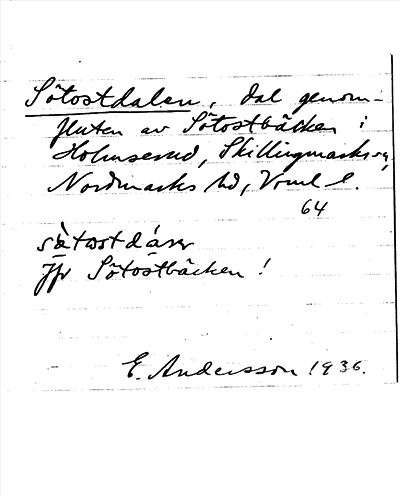 Sötostdalen, dal genom-
fluten av Sötostbäcken i
Holmserud, Skillingmarks sn,
Nordmarks hd, Vrml l.
64
sètostdáɹər
Jfr Sötostbäcken!
E. Andersson 1936.